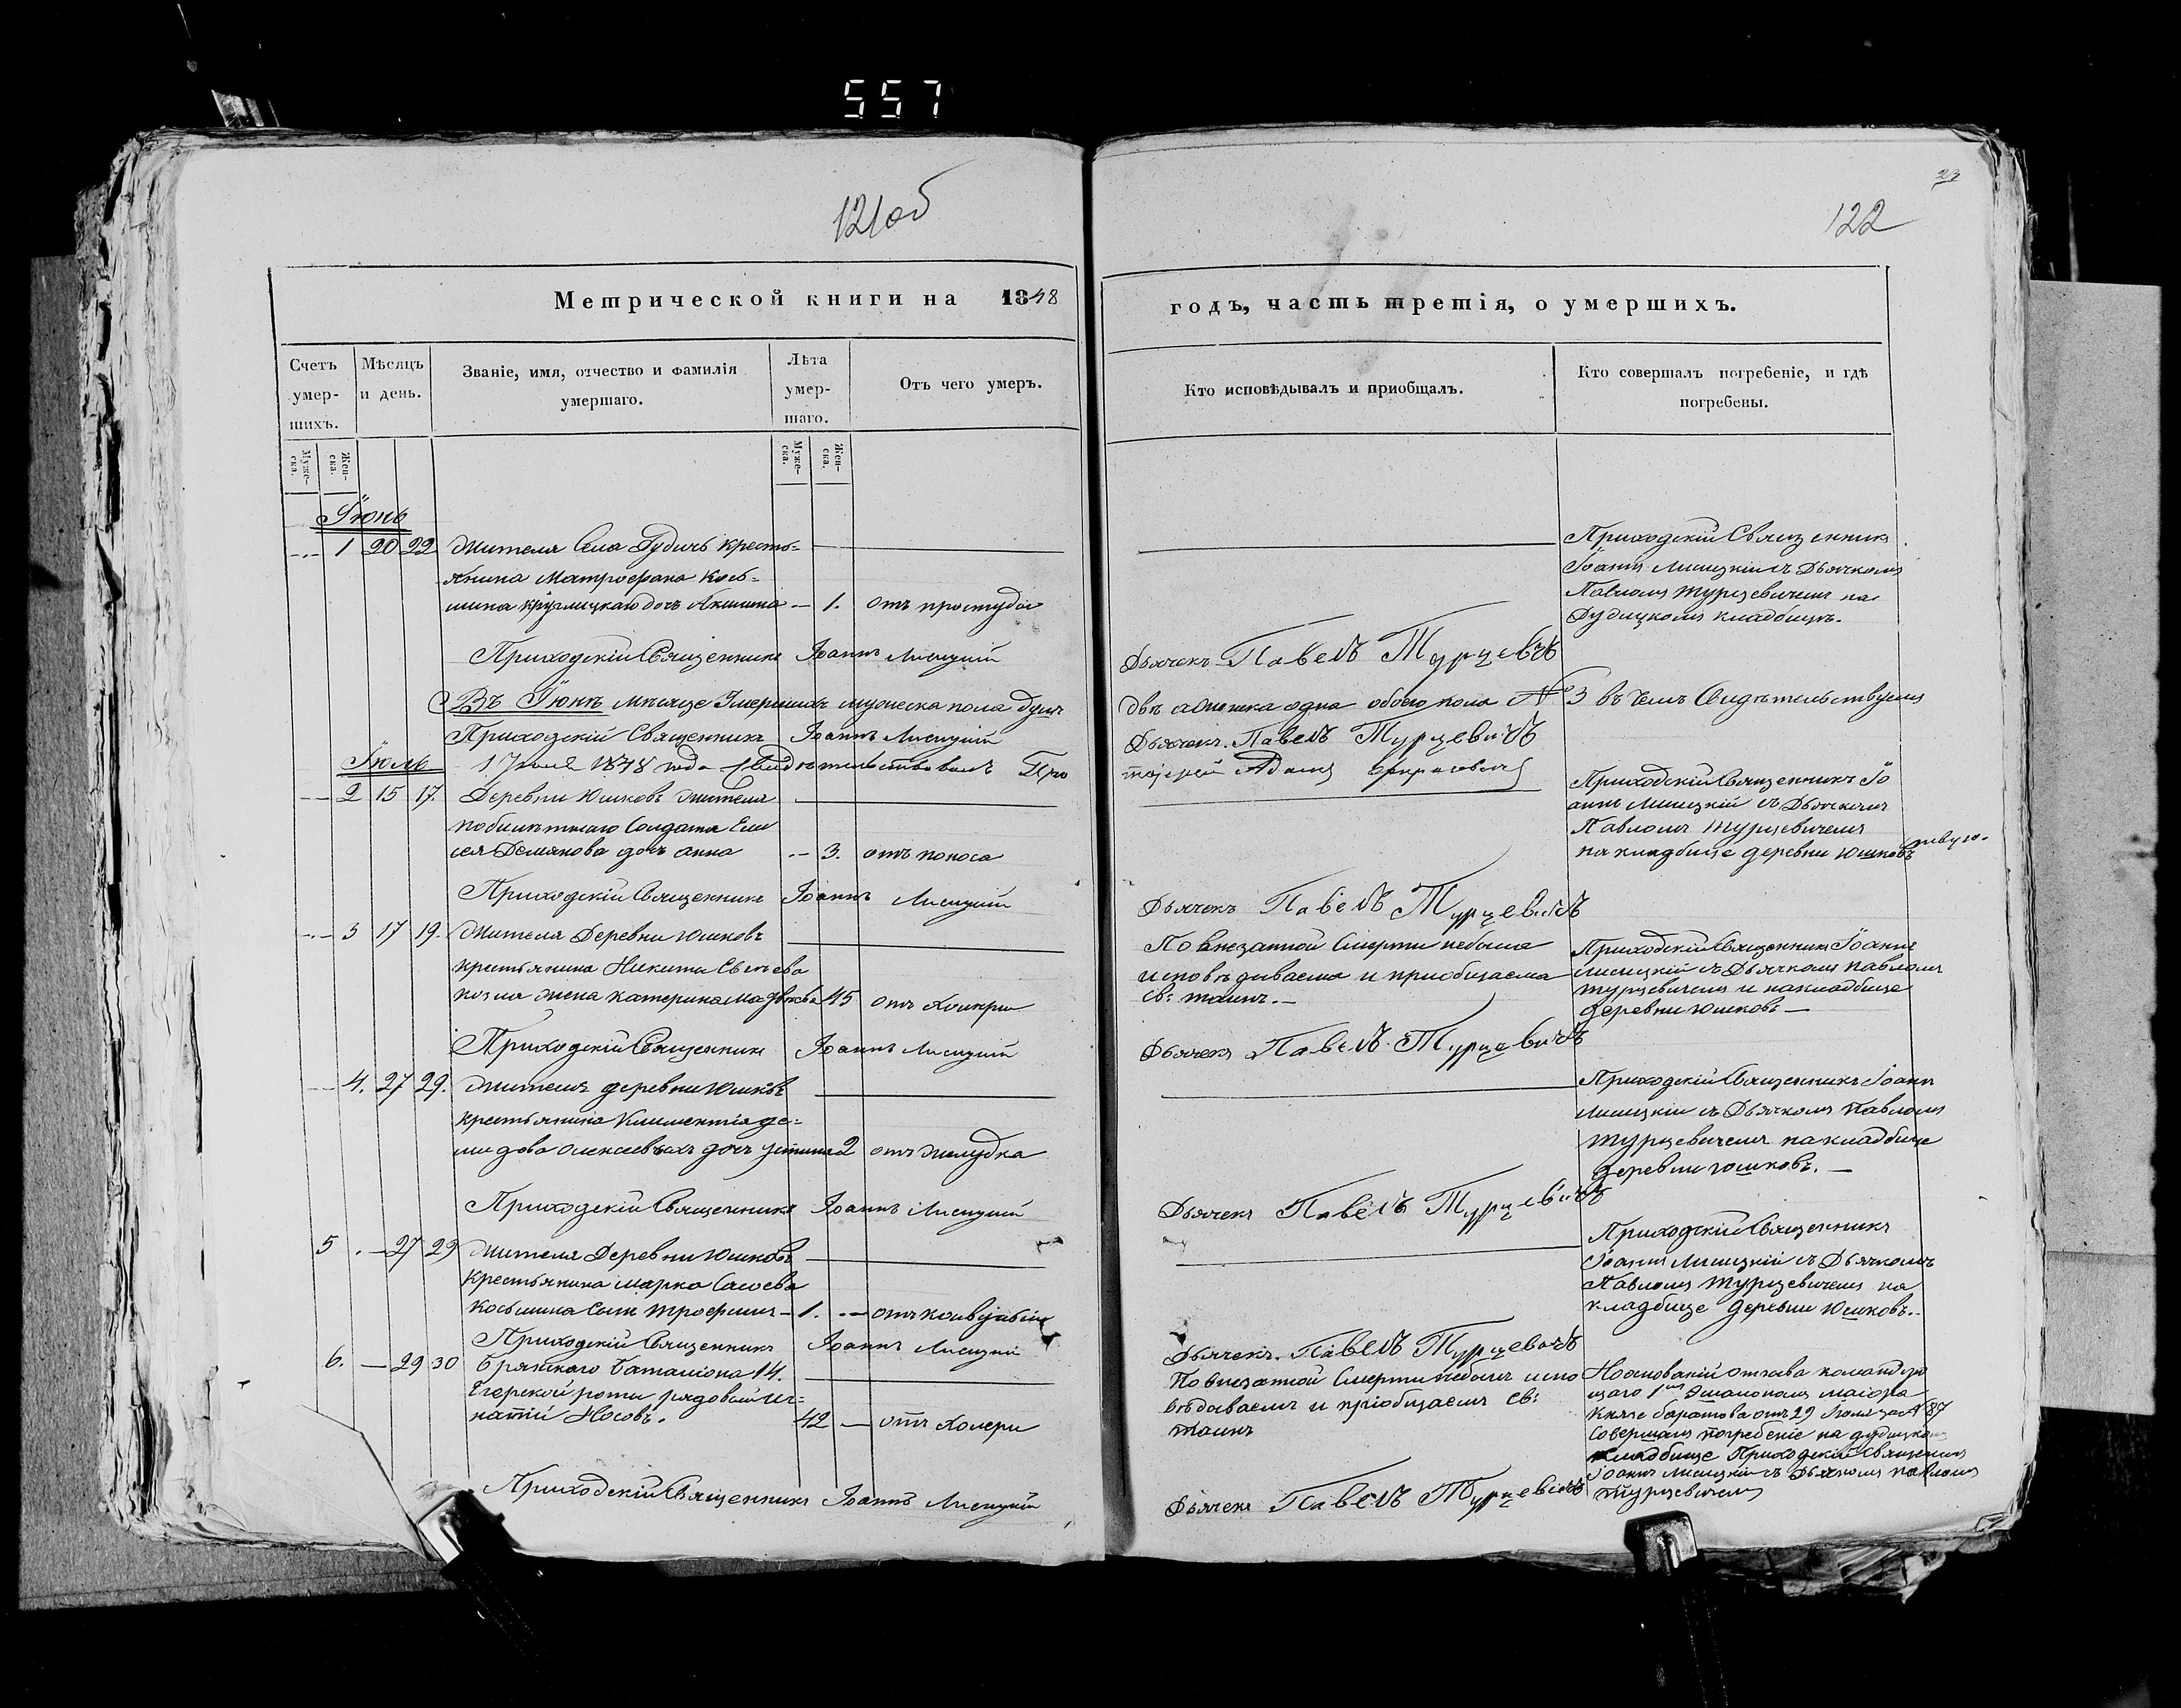 557
121об
Метрической книги на 1848
Счетъ умер-шихъ.
Мѣсяцъ и день.
Званіе, имя, отчество и фамилія умершаго.
Лѣта умер-шаго.
Отъ чего умеръ.
Муже-ска.
Жен-ска.
Муже-ска.
Жен-ска.
Іюнь
1 20 22 Жителя Села Дудичь кресть=
янина Матрофана Кось=
мина дочь Акилина — 1. отъ простуды
Приходскій Священникъ Іоаннъ Лисицкій
Въ Іюнѣ мѣсяце Умершихъ мужеска пола душъ
Приходскій Священникъ Іоаннъ Лисицкій
Іюль 1848 года свидѣтельствовалъ Про
2 15 17. Деревни Юшковъ жителя
побилѣтнаго Солдата Ели
сея Демянова дочь Анна — 3. отъ поноса
Приходскій Священникъ Іоаннъ Лисицкій
3 17 19. Жителя Деревни Юшковъ
крестьянина Никиты
жена Катерина 45 отъ Холеры
Приходскій Священникъ Іоаннъ Лисицкій
4. 27 29. Жителя деревни Юшковъ
крестьянина Климентія де=
мидова дочь Устинья 2 отъ желудка
Приходскій Священникъ Іоаннъ Лисицкій
5 — 27 29 Жителя Деревни Юшковъ
Крестьянина Марка
Косьмина Сынъ Трофимъ — 1. —
Приходскій Священникъ Іоаннъ Лисицкій
6. — 29 30 Брянскаго Баталіона 14.
Егерской роты рядовый Иг=
натій Носовъ. 42 — отъ Холеры
Приходскій Священникъ Іоаннъ Лисицкій
23
122
годъ, часть третія, о умершихъ.
Кто исповѣдывалъ и пріобщалъ.
Кто совершалъ погребеніе, и гдѣ погребены.
Приходскій Священникъ
Іоаннъ Лисицкій съ Дьячкомъ
Павломъ Турцевичемъ на
Дудицкомъ кладбищѣ.
Дьячекъ Павелъ Турцевичъ
двѣ аженска одна обоего пола № 3 въ чемъ Свидѣтельствуемъ
Дьячекъ. Павелъ Турцевичъ
тоіерей Адамъ
Приходскій Священникъ Іо
аннъ Лисицкій съ Дьячкомъ
Павломъ Турцевичемъ
на кладбище деревни Юшковъ
Дьячекъ Павелъ Турцевичъ
По внезапной Смерти небыла
исповѣдываема и приобщаема
Св: таинъ. —
Приходскій Священникъ Іоаннъ
Лисицкій съ Дьячкомъ Павломъ
Турцевичемъ и на кладбище
деревни Юшковъ —
Дьячекъ Павелъ Турцевичъ
Приходскій Священникъ Іоаннъ
Лисицкій съ Дьячкомъ Павломъ
Турцевичемъ на кладбище
деревни Юшковъ. —
Дьячекъ Павелъ Турцевичъ
Приходскій Священникъ
Іоаннъ Лисицкій съ Дьячкомъ
Павломъ Турцевичемъ на
кладбище деревни Юшковъ.
Дьячекъ. Павелъ Турцевичъ
По внезапной Смерти небылъ испо
вѣдываемъ и пріобщаемъ Св:
таинъ
Наоснованій отзыва командую
щаго 1 эшалономъ маіора
Князе Баратова отъ 29 Іюля за № 87
Совершалъ погребеніе на дудицкомъ
кладбище Приходскій Священникъ
Іоаннъ Лисицкій съ Дьячкомъ Павломъ
Турцевичемъ
Дьячекъ Павелъ Турцевичъ